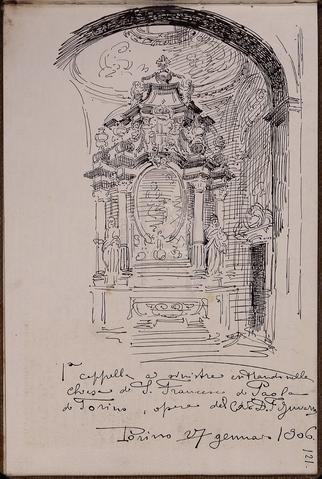 1ª cappella a sinistra entrando nella
chiesa di S. Francesco di Paola
di Torino, opera del
Torino 27 gennaio 1906.
121.